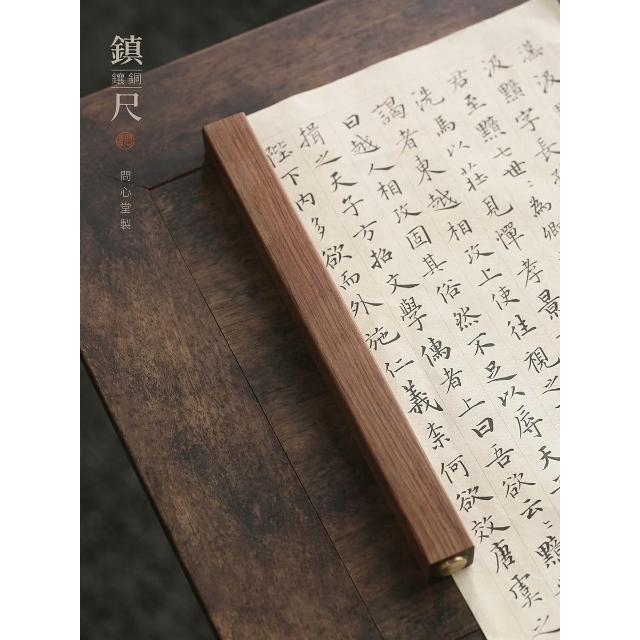 鎮
鑲銅
尺
問心堂製
漢汲
汲黯字長
君至黯七世〻為卿
洗馬以莊見憚孝景
謁者東越相攻上使往視之
曰越人相攻固其俗然不足以辱天
損之天子方招文學儒者上曰吾欲云〻黯
陛下內多欲而外施仁義柰何欲效唐虞之